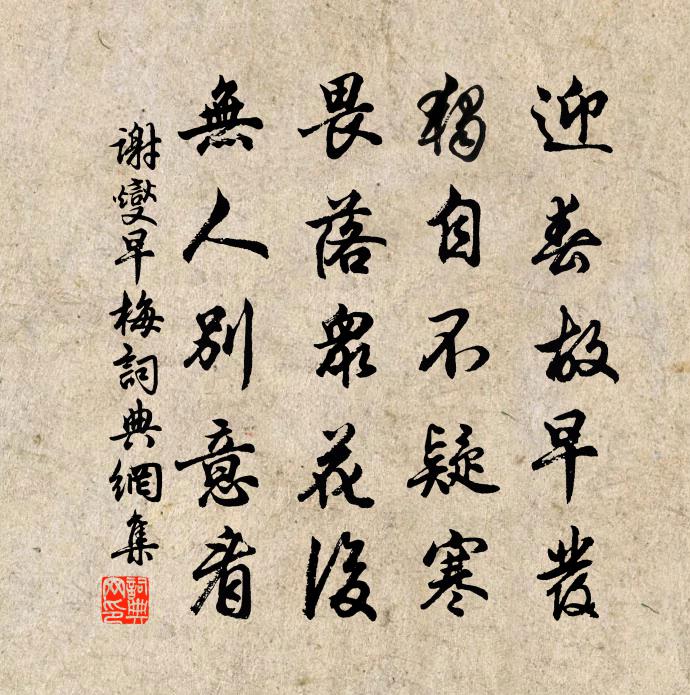 迎春故早發
獨自不疑寒
畏落衆花後
無人別意看
謝燮早梅詞典網集
詞典網印